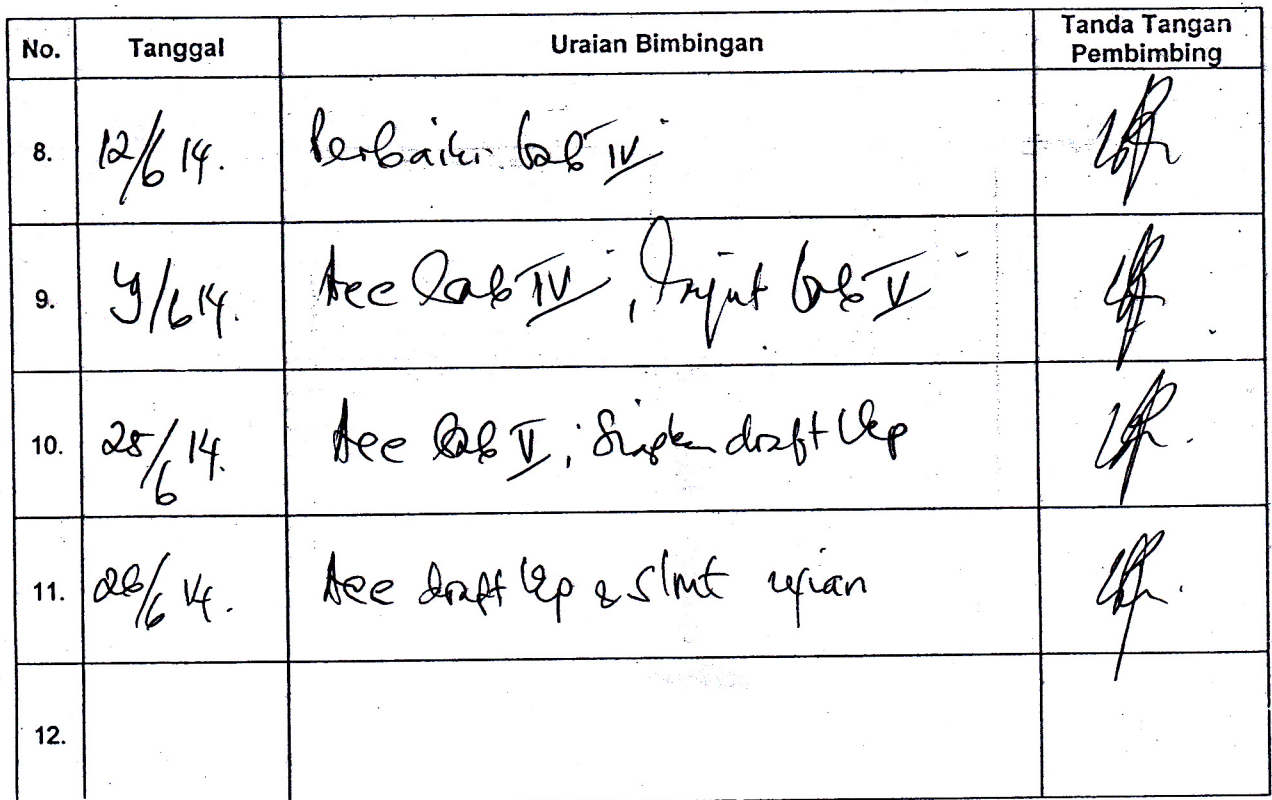 No. Tanggal Uraian Bimbingan Tanda Tangan Pembimbing
8. 12/6 14. Perbaiki bab IV
9. 9/6 14. Acc bab IV, lanjut bab V
10. 25/6 14. Acc bab V, Siapkan draft lkp
11. 26/6 14. Acc draft lkp & slmt ujian
12.